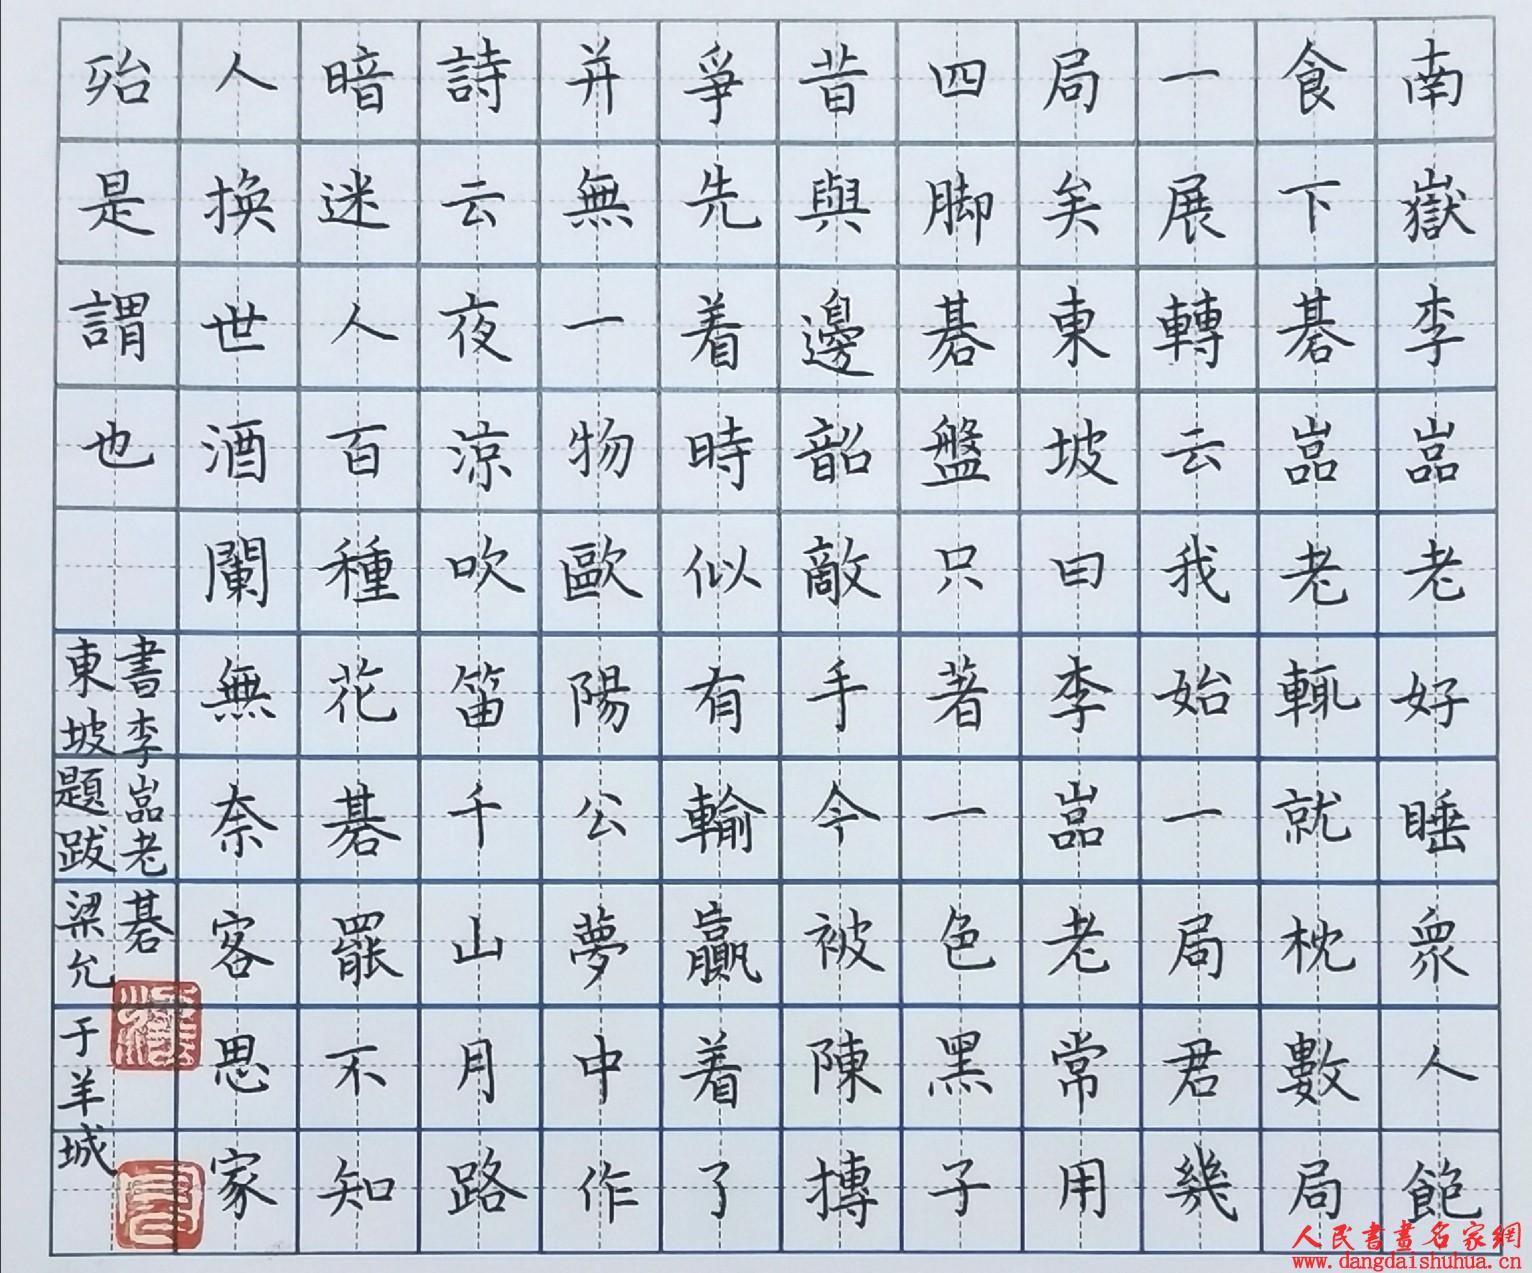 南嶽李嵓老好睡衆人飽
食下碁嵓老輒就枕數局
一展轉云我始一局君幾
局矣東坡曰李嵓老常用
四脚碁盤只著一色黑子
昔與邊韶敵手今被陳摶
爭先着時似有輸贏着了
并無一物歐陽公夢中作
詩云夜涼吹笛千山月路
暗迷人百種花碁罷不知
人換世酒闌無奈客思家
殆是謂也
書李嵓老碁
東坡題跋梁允于羊城
人民書畫名家網
www.dangdaishuhua.cn